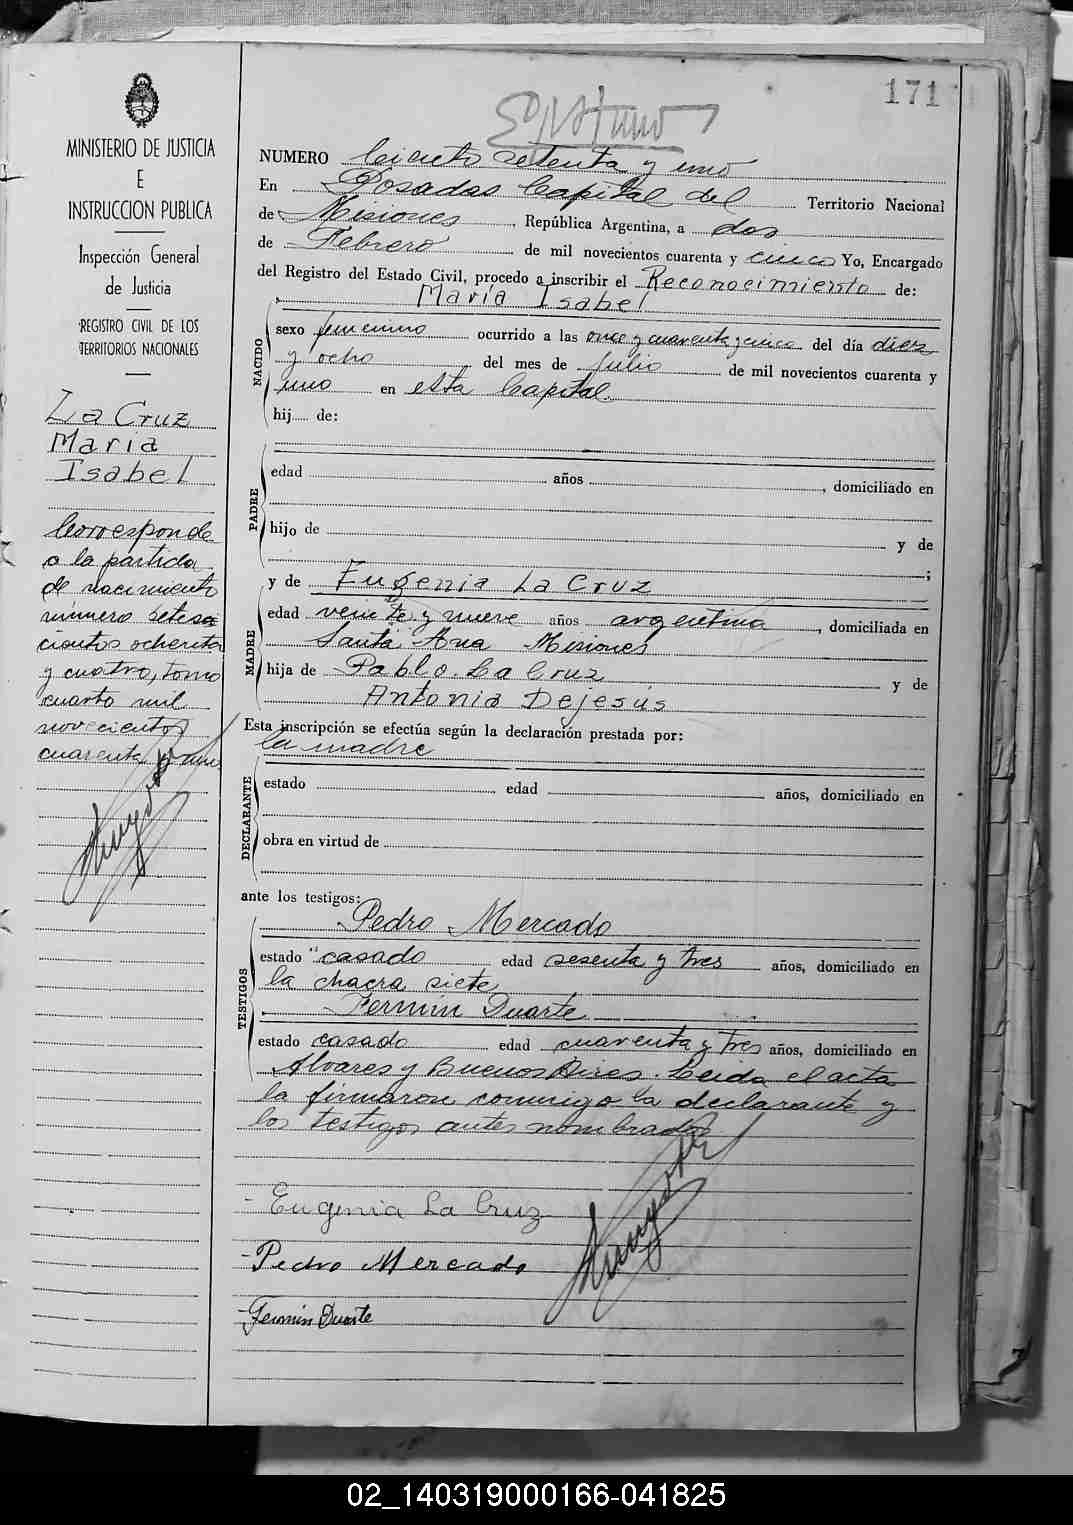 171
NUMERO Ciento setenta y uno
En Posadas Capital del Territorio Nacional
de Misiones, República Argentina, a dos
de Febrero de mil novecientos cuarenta y cinco Yo, Encargado
del Registro del Estado Civil, procedo a inscribir el Reconocimiento de:
María Isabel
NACIDO
sexo femenino ocurrido a las once y cuarenta y cinco del día diez
y ocho del mes de Julio de mil novecientos cuarenta y
uno en esta Capital.
hij..... de:
PADRE
edad años , domiciliado en
hijo de y de
;
y de Eugenia La Cruz
MADRE
edad veinte y nueve años argentina, domiciliada en
Santa Ana Misiones
hija de Pablo La Cruz y de
Antonia Dejesús
Esta inscripción se efectúa según la declaración prestada por:
la madre
DECLARANTE
estado edad años, domiciliado en
obra en virtud de
ante los testigos:
Pedro Mercado
TESTIGOS
estado casado edad sesenta y tres años, domiciliado en
la chacra siete
Fermin Duarte
estado casado edad cuarenta y tres años, domiciliado en
Alvares y Buenos Aires. Leida el acta
la firmaron conmigo la declarante y
los testigos antes nombrados
Eugenia La Cruz
Pedro Mercado
Fermin Duarte
MINISTERIO DE JUSTICIA
E
INSTRUCCION PUBLICA
Inspección General
de Justicia
REGISTRO CIVIL DE LOS
TERRITORIOS NACIONALES
La Cruz
Maria
Isabel
Corresponde
a la partida
de nacimiento
número setesi
cientos ochenta
y cuatro, tomo
cuarto mil
novecientos
cuarenta y uno
02_140319000166-041825